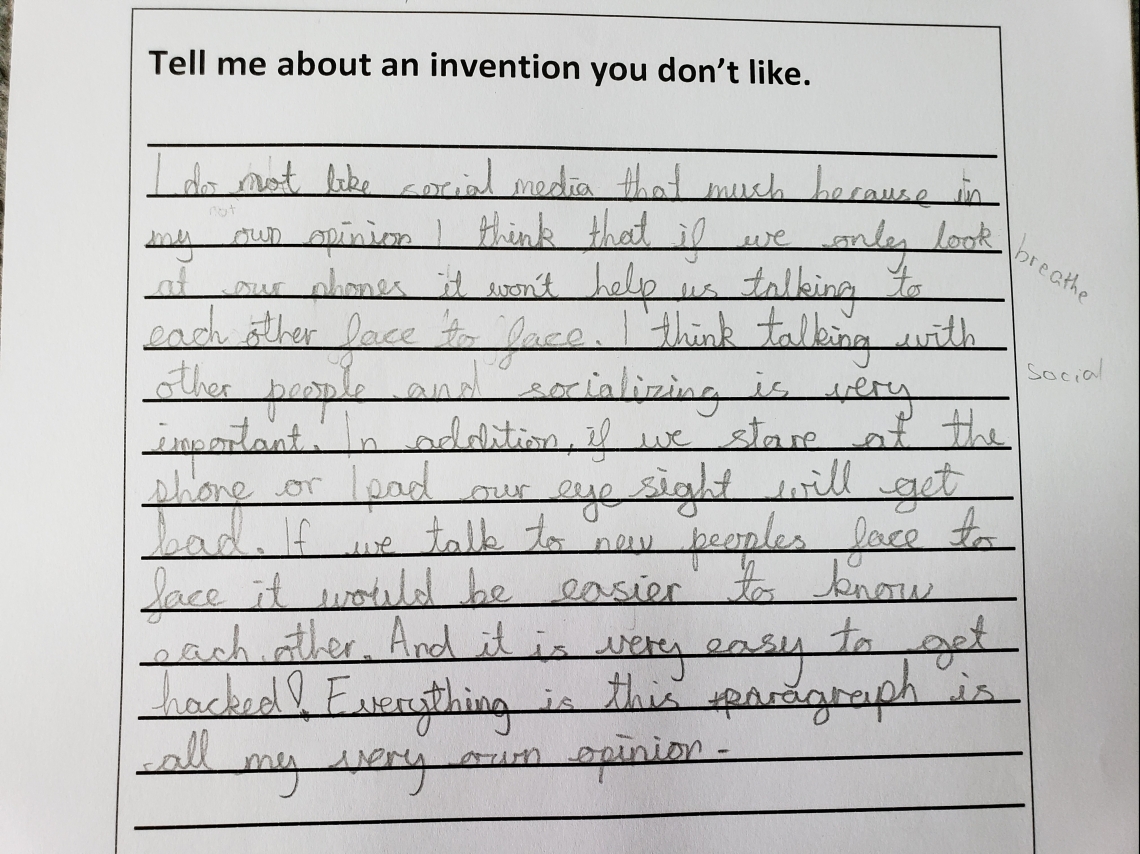 Tell me about an invention you don't like.
I do not like social media that much because in
not
my own opinion I think that if we only look
breathe
at our phones it won't help us talking to
each other face to face. I think talking with
social
other people and socializing is very
important. In addition, if we stare at the
phone or Ipad our eye sight will get
bad. If we talk to new peoples face to
face it would be easier to know
each other. And it is very easy to get
hacked! Everything is this paragraph is
all my very own opinion.